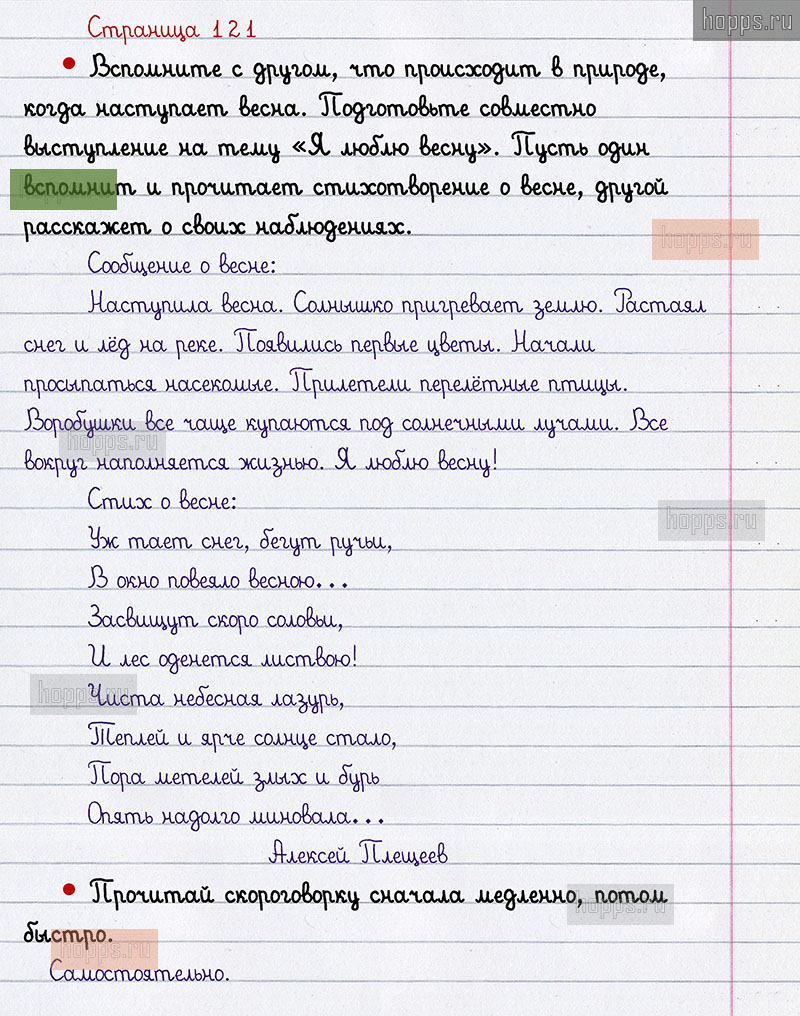 hopps.ru
Страница 121
• Вспомните с другом, что происходит в природе,
когда наступает весна. Подготовьте совместно
выступление на тему «Я люблю весну». Пусть один
вспомнит и прочитает стихотворение о весне, другой
расскажет о своих наблюдениях.
hopps.ru
Сообщение о весне:
Наступила весна. Солнышко пригревает землю. Растаял
снег и лёд на реке. Появились первые цветы. Начали
просыпаться насекомые. Прилетели перелётные птицы.
Воробушки все чаще купаются под солнечными лучами. Все
hopps.ru
вокруг наполняется жизнью. Я люблю весну!
Стих о весне:
hopps.ru
Уж тает снег, бегут ручьи,
В окно повеяло весною...
Засвищут скоро соловьи,
И лес оденется листвою!
hopps.ru
Чиста небесная лазурь,
Теплей и ярче солнце стало,
Пора метелей злых и бурь
Опять надолго миновала...
Алексей Плещеев
• Прочитай скороговорку сначала медленно, потом
hopps.ru
быстро.
hopps.ru
Самостоятельно.